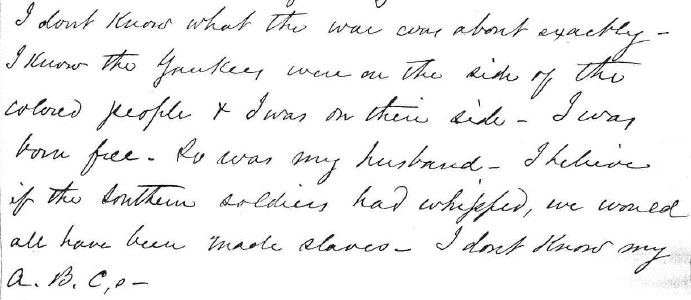 I dont know what the war was about exactly -
I know the Yankees were on the side of the
colored people & I was on their side - I was
born free - So was my husband - I believe
if the southern soldiers had whipped, we would
all have been made slaves - I dont know my
A. B. C,s -